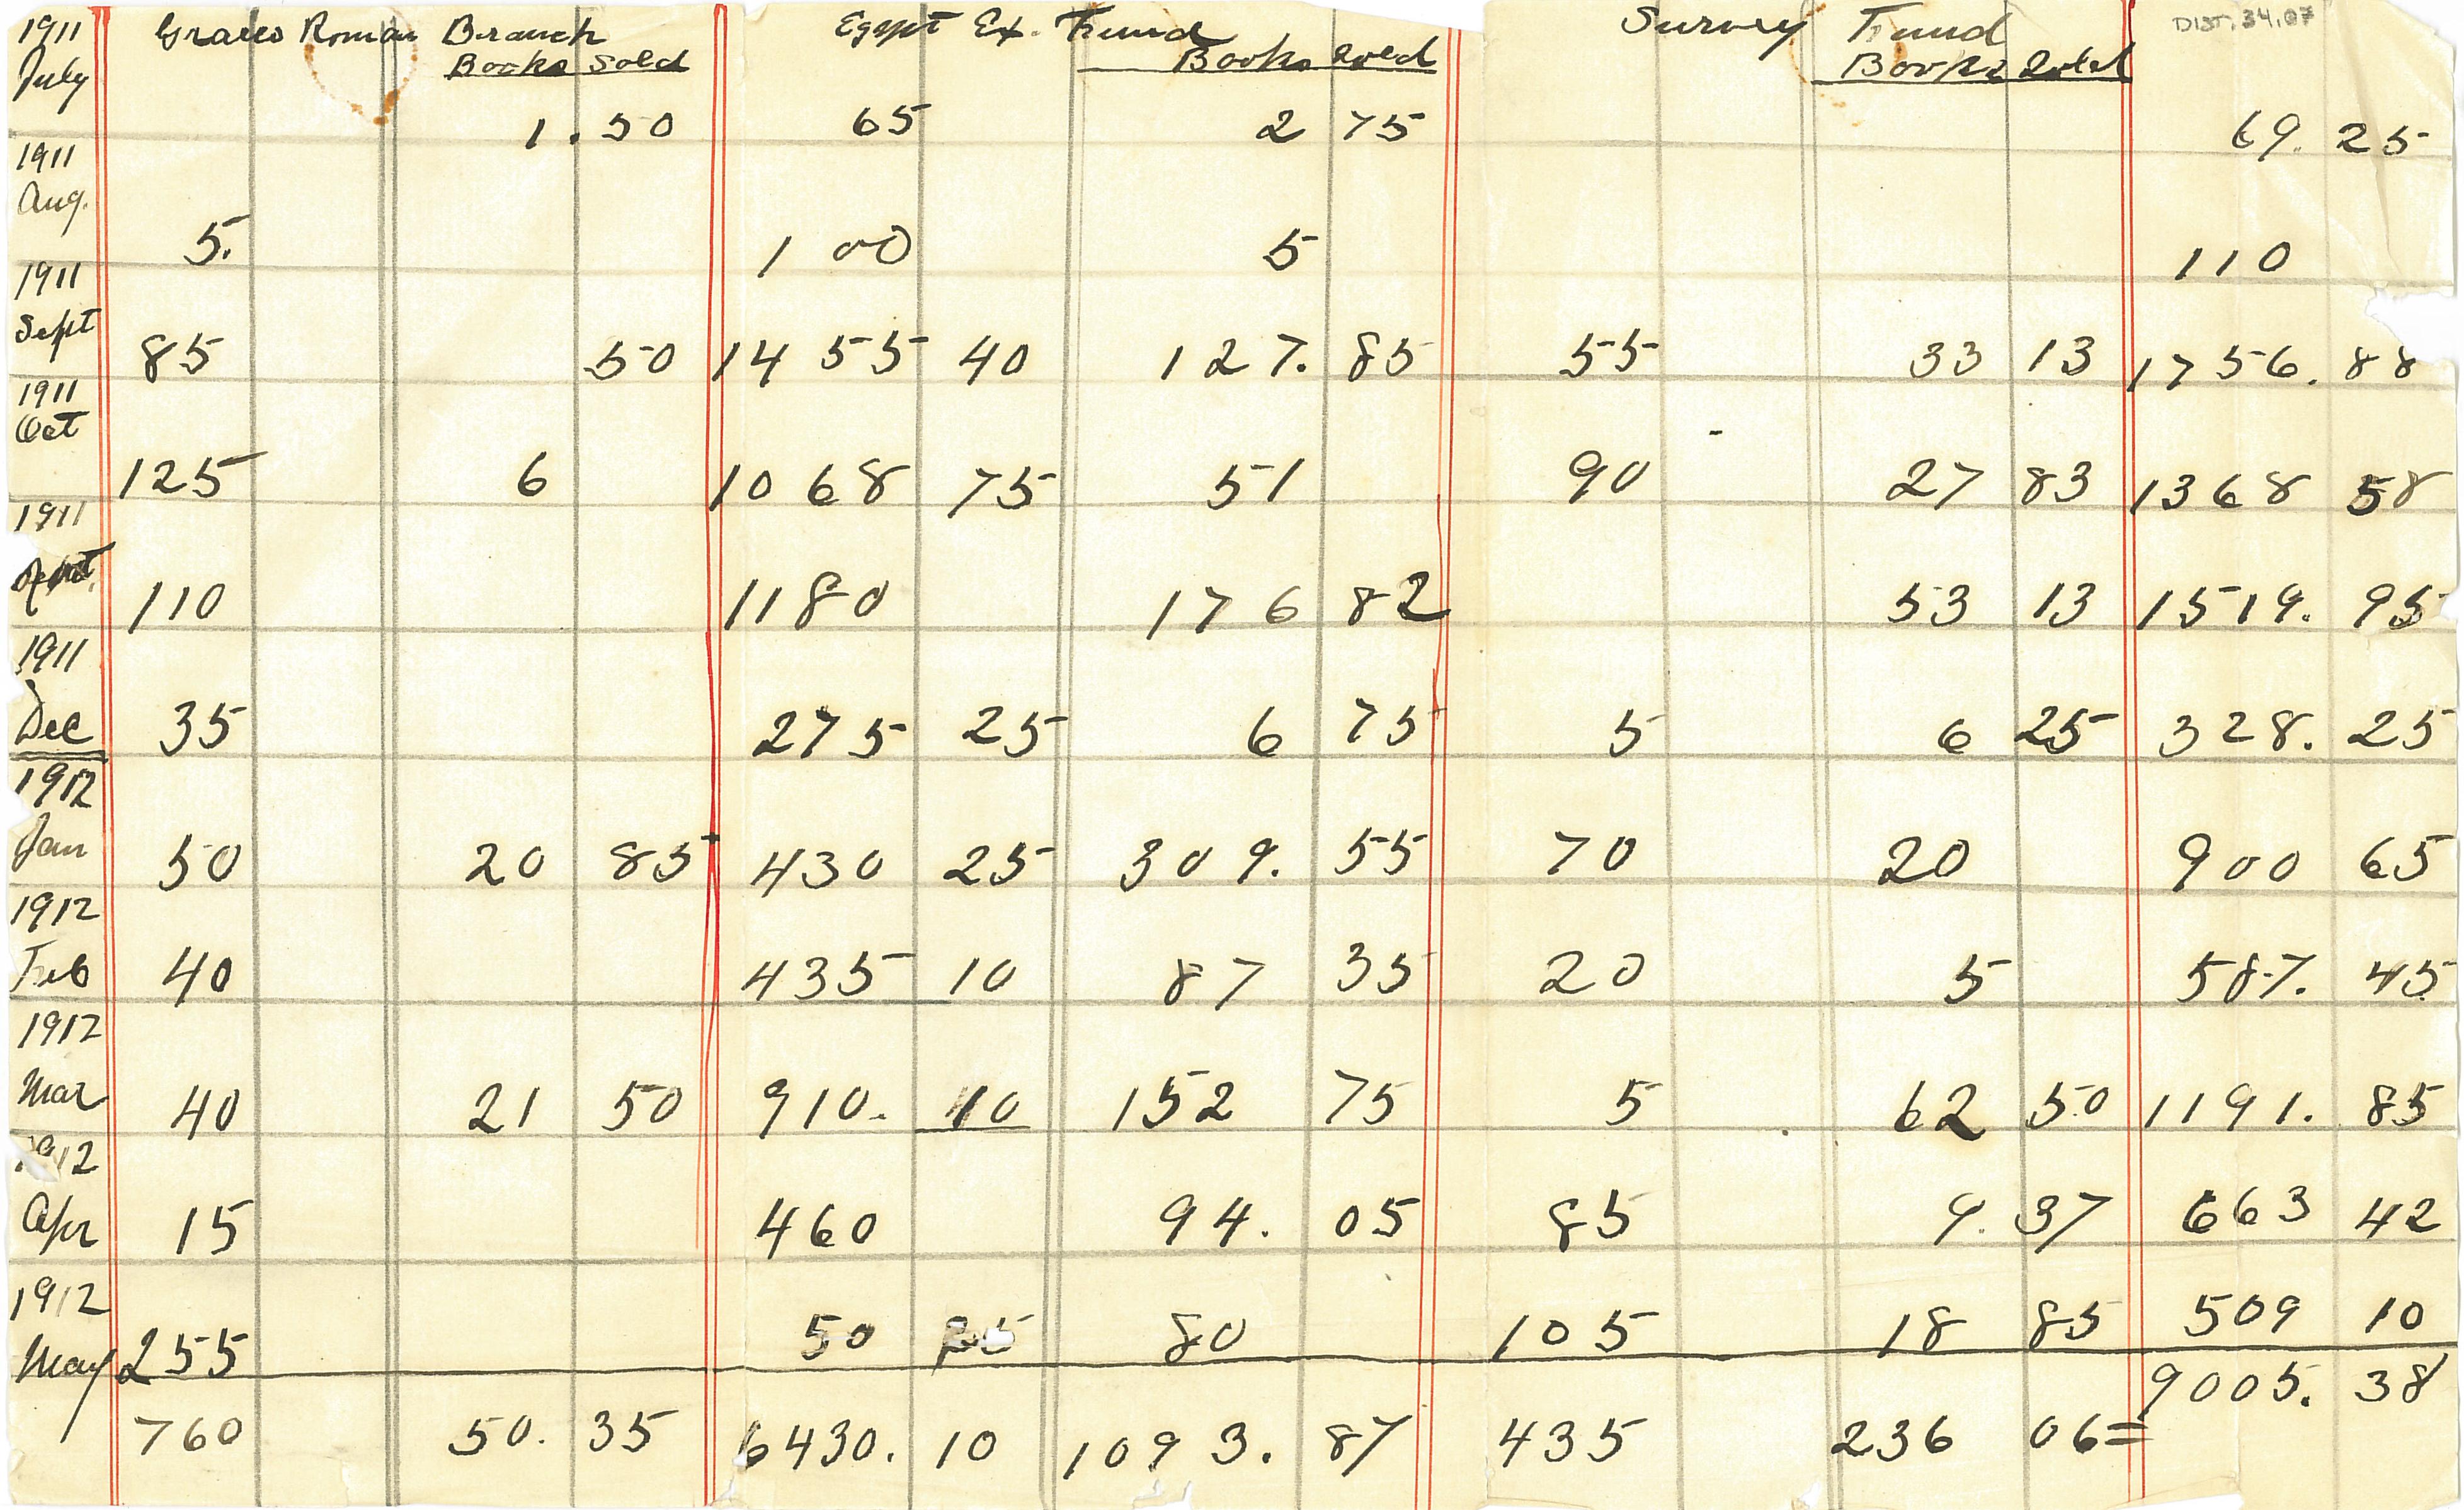 1911 Graeco Roman Branch Egypt Ex. Fund Survey Fund DIST.34.07
July Books Sold Books Sold Books Sold
1.50 65 2 75 69. 25
1911
Aug.
5. 1 00 5 110
1911
Sept
85 50 1455 40 127. 85 55 33 13 1756. 88
1911
Oct
125 6 1068 75 51 90 27 83 1368 58
1911
110 1180 176 82 53 13 1519. 95
1911
Dec 35 275 25 6 75 5 6 25 328. 25
1912
Jan 50 20 85 430 25 309. 55 70 20 900 65
1912
Feb 40 435 10 87 35 20 5 587. 45
1912
Mar 40 21 50 910. 10 152 75 5 62 50 1191. 85
1912
Apr 15 460 94. 05 85 9. 37 663 42
1912
May 255 50 80 105 18 85 509 10
9005. 38
760 50. 35 6430. 10 1093. 87 435 236 06=